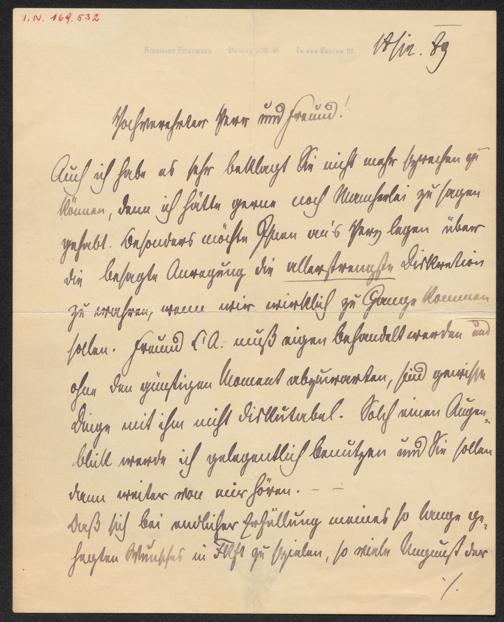 I.N. 169.532
18/IV. 89
Hochverehrter Herr und Freund!
Auch ich habe es sehr beklagt Sie nicht mehr sprechen zu
können, denn ich hätte gerne noch Mancherlei zu sagen
gehabt. Besonders möchte Ihnen an's Herz legen über
die besagte Anregung die allerstrengste Diskretion
zu wahren, wenn wir wirklich zu Gange kommen
sollen. Freund muß eigen behandelt werden und
ohne den günstigen Moment abzuwarten, sind gewisse
Dinge mit ihm nicht diskutabel. Solch einen Augen-
blick werde ich gelegentlich benutzen und Sie sollen
dann weiter von mir hören. –
Daß sich bei endlicher Erfüllung meines so lange ge-
hegten Wunsches in zu spielen, so viele Ungunst der
./.